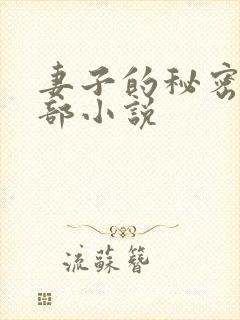 妻子的秘密
部小说
流蘇簪